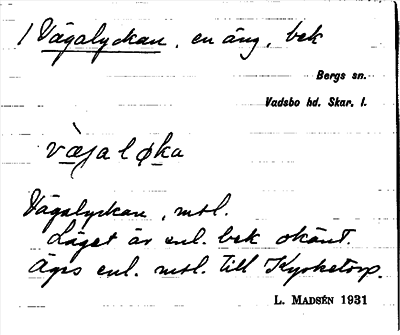 1 Vägalyckan, en äng, bek
Bergs sn.
Vadsbo hd. Skar. l.
vægaløka
Vägalyckan, mtl.
Läget är enl. bek okänt.
Ägs enl. mtl. till Kyrketorp.
L. MADSÉN 1931